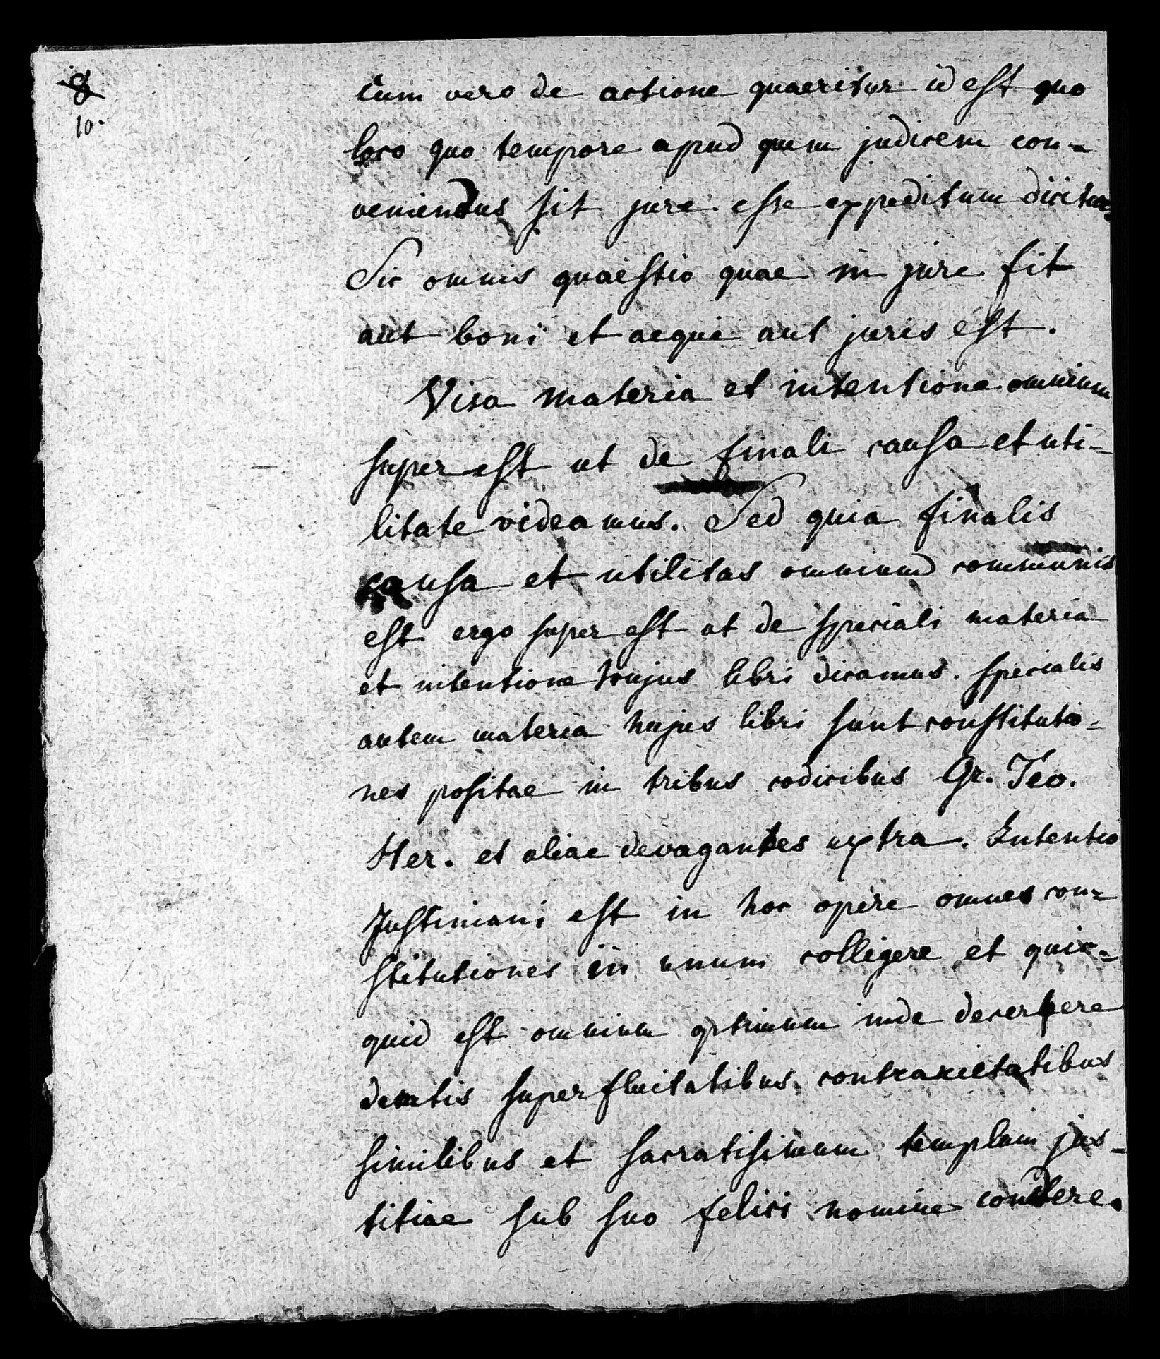 8
10.
cum vero de actione quaeritur id est quo
loco quo tempore apud quem judicem con-
veniendus sit jure esse expeditum dicitur.
Sic omnis quaestio quae in jure fit
aut boni et aequi aut juris est.
Visa materia et intentione omnium
super est ut de finali causa et uti-
litate videamus. Sed quia finalis
causa et utilitas omnium communis
est ergo super est ut de speciali materia
et intentione hujus libri dicamus. specialis
autem materia hujus libri sunt constitutio-
nes positae in tribus codicibus Gr. Teo.
Her. et aliae devagantes extra. Intentio
Justiniani est in hoc opere omnes con-
stitutiones in unum colligere et quic-
quid est omnium optimum inde decerpere
demtis superfluitatibus contrarietatibus
similibus et sacratisimum templum jus-
titiae sub suo felici nomine condere.